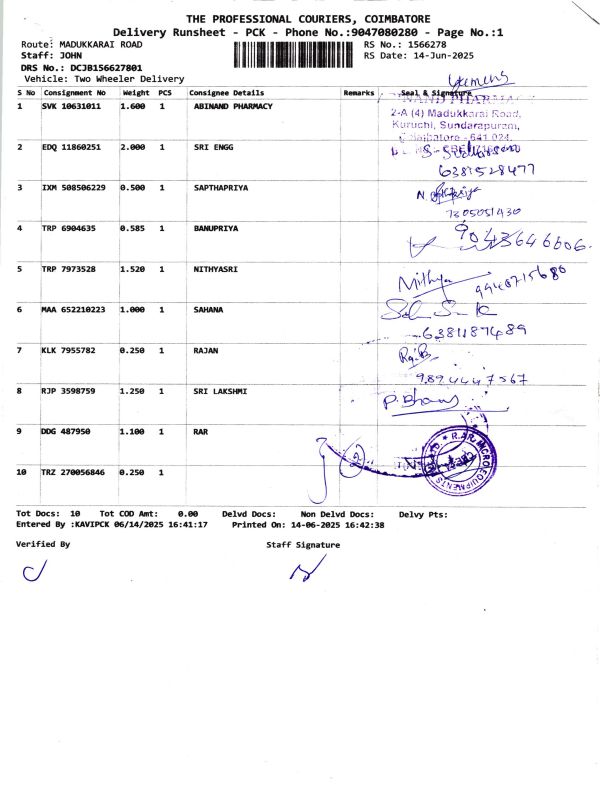 THE PROFESSIONAL COURIERS, COIMBATORE
Delivery Runsheet - PCK - Phone No.:9047080280 - Page No.:1
Route: MADUKKARAI ROAD RS No.: 1566278
Staff: JOHN RS Date: 14-Jun-2025
DRS No.: DCJB156627801
Vehicle: Two Wheeler Delivery
S No Consignment No Weight PCS Consignee Details Remarks Seal & Signature
1 SVK 10631011 1.600 1 ABINAND PHARMACY
2-A (4) Madukkarai Road,
Kuruchi, Sundarapuram,
2 EDQ 11860251 2.000 1 SRI ENGG
6381528477
3 IXM 508506229 0.500 1 SAPTHAPRIYA
7305051430
4 TRP 6904635 0.585 1 BANUPRIYA
9043646606.
5 TRP 7973528 1.520 1 NITHYASRI
Nithya 9940715680
6 MAA 652210223 1.000 1 SAHANA
6381187489
7 KLK 7955782 0.250 1 RAJAN
9894447567
8 RJP 3598759 1.250 1 SRI LAKSHMI
9 DDG 487950 1.100 1 RAR
2
10 TRZ 270056846 0.250 1
Tot Docs: 10 Tot COD Amt: 0.00 Delvd Docs: Non Delvd Docs: Delvy Pts:
Entered By :KAVIPCK 06/14/2025 16:41:17 Printed On: 14-06-2025 16:42:38
Verified By Staff Signature